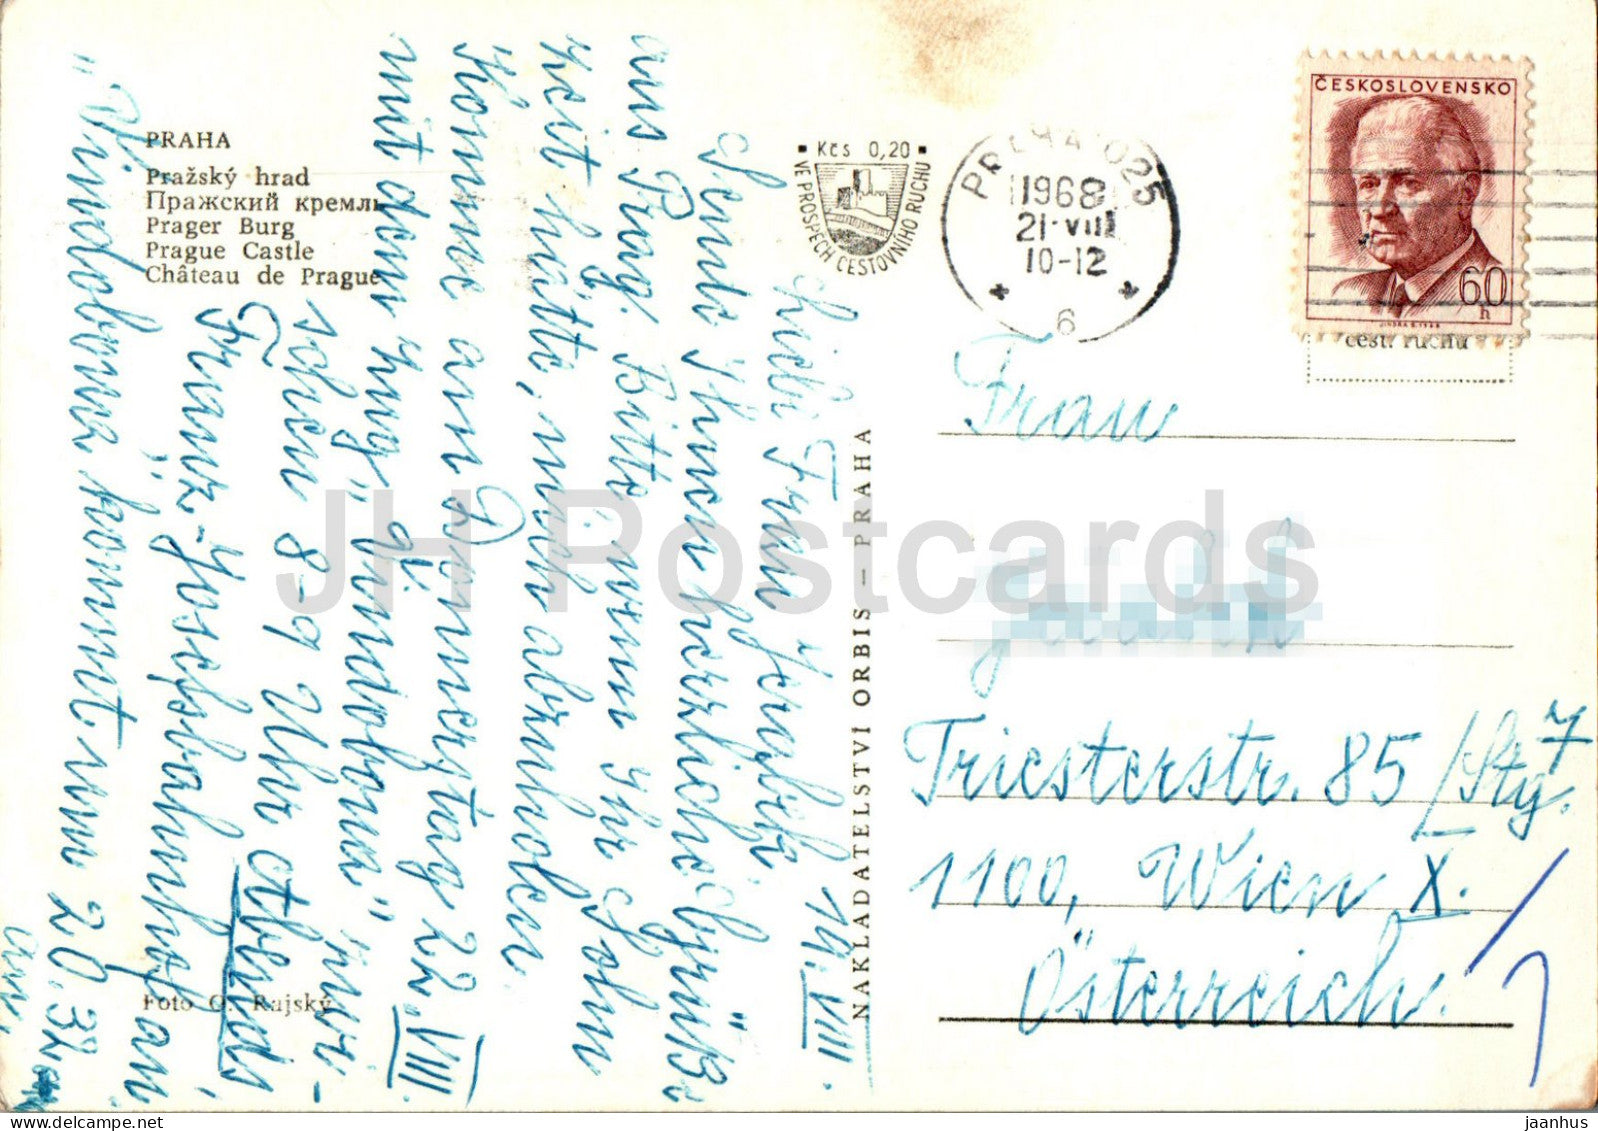 PRAHA
Pražský hrad
Пражский кремль
Prager Burg
Prague Castle
Château de Prague
Foto O. Rajský
NAKLADATELSTVÍ ORBIS — PRAHA
Kčs 0,20
VE PROSPĚCH CESTOVNÍHO RUCHU
PRAHA 025
1968
21·VIII
10-12
6
ČESKOSLOVENSKO
60
h
cest. ruchu
Liebe Frau Jerabek! 19.VIII.
Sende Ihnen herzliche Grüße
aus Prag. Bitte, wenn Ihr Sohn
Zeit hätte, mich abzuholen.
Komme am Donnerstag 22.VIII.
mit dem Zug "Vindobona" zwi-
schen 8-9 Uhr abends,
Franz-Josefsbahnhof an.
"Vindobona kommt um 20.32
an.
Frau
Triesterstr. 85/Stg. 7
1100, Wien X.
Österreich.
JH Postcards
jaanhus